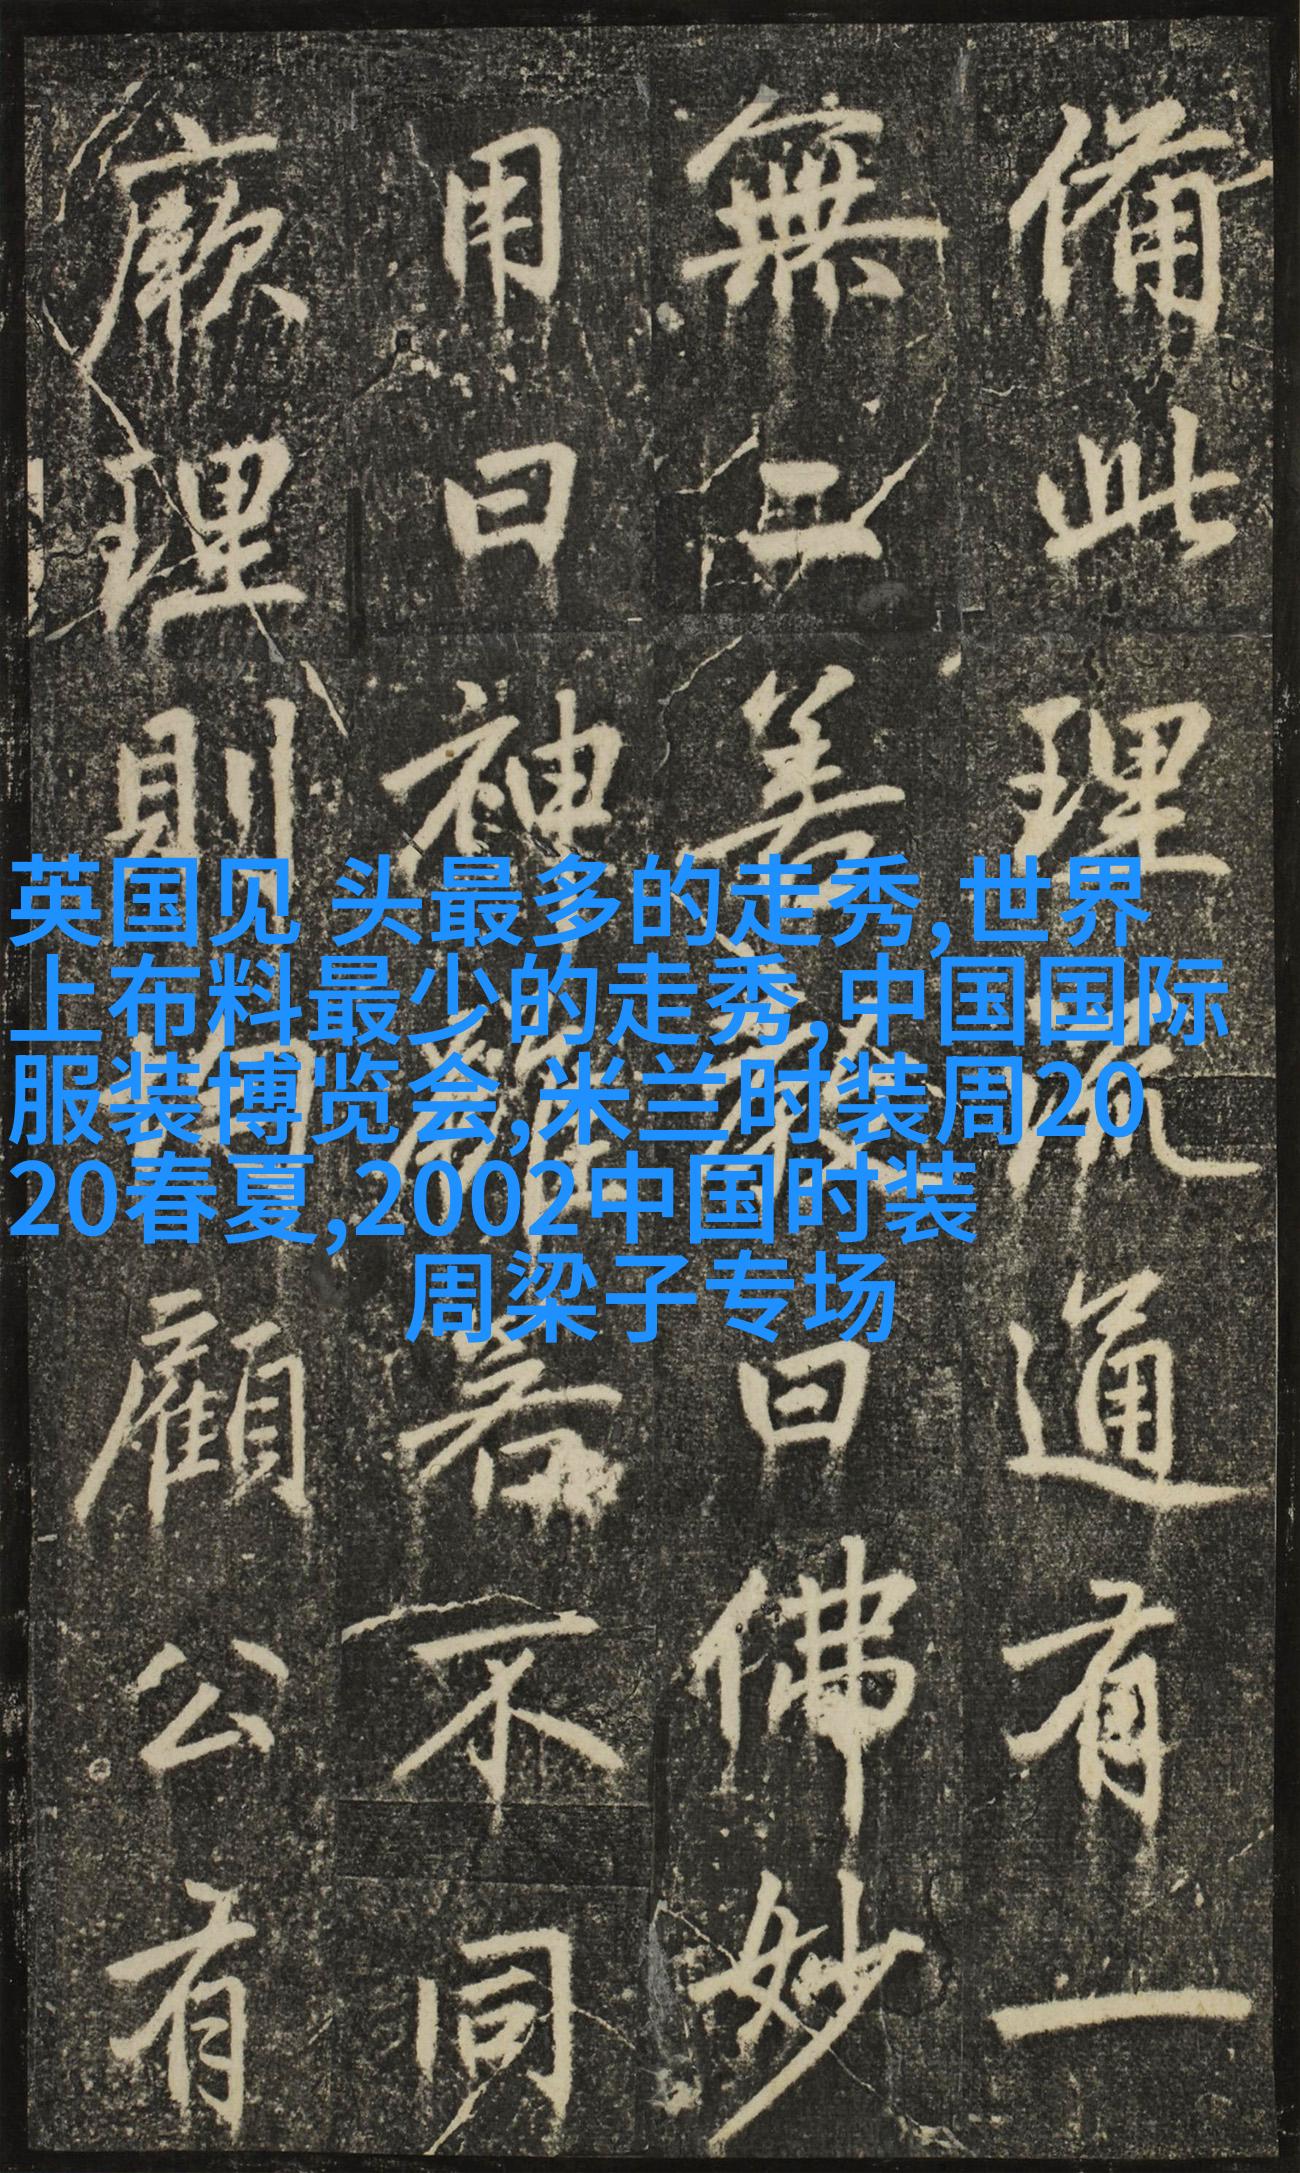 備此理通有一
無二善曰佛妙
用曰神不同
厥理則顧公有
英国见 头最多的走秀,世界
上布料最少的走秀,中国国际
服装博览会,米兰时装周20
20春夏,2002中国时装
周梁子专场